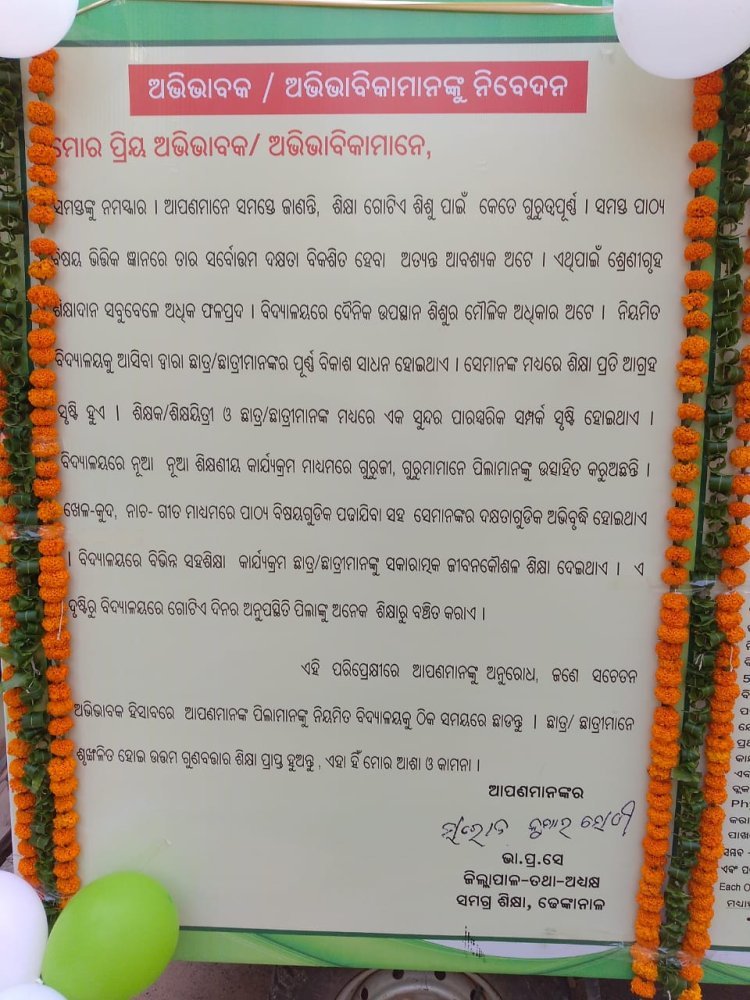 ଅଭିଭାବକ / ଅଭିଭାବିକାମାନଙ୍କୁ ନିବେଦନ
ମୋର ପ୍ରିୟ ଅଭିଭାବକ/ ଅଭିଭାବିକାମାନେ,
ସମସ୍ତଙ୍କୁ ନମସ୍କାର । ଆପଣମାନେ ସମସ୍ତେ ଜାଣନ୍ତି, ଶିକ୍ଷା ଗୋଟିଏ ଶିଶୁ ପାଇଁ କେତେ ଗୁରୁତ୍ୱପୂର୍ଣ୍ଣ । ସମସ୍ତ ପାଠ୍ୟ
ବିଷୟ ଭିତ୍ତିକ ଜ୍ଞାନରେ ତାର ସର୍ବୋତ୍ତମ ଦକ୍ଷତା ବିକଶିତ ହେବା ଅତ୍ୟନ୍ତ ଆବଶ୍ୟକ ଅଟେ । ଏଥିପାଇଁ ଶ୍ରେଣୀଗୃହ
ଶିକ୍ଷାଦାନ ସବୁବେଳେ ଅଧିକ ଫଳପ୍ରଦ । ବିଦ୍ୟାଳୟରେ ଦୈନିକ ଉପସ୍ଥାନ ଶିଶୁର ମୌଳିକ ଅଧିକାର ଅଟେ । ନିୟମିତ
ବିଦ୍ୟାଳୟକୁ ଆସିବା ଦ୍ୱାରା ଛାତ୍ର/ଛାତ୍ରୀମାନଙ୍କର ପୂର୍ଣ୍ଣ ବିକାଶ ସାଧନ ହୋଇଥାଏ । ସେମାନଙ୍କ ମଧ୍ୟରେ ଶିକ୍ଷା ପ୍ରତି ଆଗ୍ରହ
ସୃଷ୍ଟି ହୁଏ । ଶିକ୍ଷକ/ଶିକ୍ଷୟିତ୍ରୀ ଓ ଛାତ୍ର/ଛାତ୍ରୀମାନଙ୍କ ମଧ୍ୟରେ ଏକ ସୁନ୍ଦର ପାରସ୍ପରିକ ସମ୍ପର୍କ ସୃଷ୍ଟି ହୋଇଥାଏ ।
ବିଦ୍ୟାଳୟରେ ନୂଆ ନୂଆ ଶିକ୍ଷଣୀୟ କାର୍ଯ୍ୟକ୍ରମ ମାଧ୍ୟମରେ ଗୁରୁଜୀ, ଗୁରୁମାମାନେ ପିଲାମାନଙ୍କୁ ଉତ୍ସାହିତ କରୁଅଛନ୍ତି ।
ଖେଳ-କୁଦ, ନାଚ- ଗୀତ ମାଧ୍ୟମରେ ପାଠ୍ୟ ବିଷୟଗୁଡିକ ପଢାଯିବା ସହ ସେମାନଙ୍କର ଦକ୍ଷତାଗୁଡିକ ଅଭିବୃଦ୍ଧି ହୋଇଥାଏ
। ବିଦ୍ୟାଳୟରେ ବିଭିନ୍ନ ସହଶିକ୍ଷା କାର୍ଯ୍ୟକ୍ରମ ଛାତ୍ର/ଛାତ୍ରୀମାନଙ୍କୁ ସକାରାତ୍ମକ ଜୀବନକୌଶଳ ଶିକ୍ଷା ଦେଇଥାଏ । ଏ
ଦୃଷ୍ଟିରୁ ବିଦ୍ୟାଳୟରେ ଗୋଟିଏ ଦିନର ଅନୁପସ୍ଥିତି ପିଲାଙ୍କୁ ଅନେକ ଶିକ୍ଷାରୁ ବଞ୍ଚିତ କରାଏ ।
ଏହି ପରିପ୍ରେକ୍ଷୀରେ ଆପଣମାନଙ୍କୁ ଅନୁରୋଧ, ଜଣେ ସଚେତନ
ଅଭିଭାବକ ହିସାବରେ ଆପଣମାନଙ୍କ ପିଲାମାନଙ୍କୁ ନିୟମିତ ବିଦ୍ୟାଳୟକୁ ଠିକ ସମୟରେ ଛାଡନ୍ତୁ । ଛାତ୍ର/ ଛାତ୍ରୀମାନେ
ଶୃଙ୍ଖଳିତ ହୋଇ ଉତ୍ତମ ଗୁଣବତ୍ତାର ଶିକ୍ଷା ପ୍ରାପ୍ତ ହୁଅନ୍ତୁ , ଏହା ହିଁ ମୋର ଆଶା ଓ କାମନା ।
ଆପଣମାନଙ୍କର
ସରୋଜ କୁମାର ସେଠୀ
ଭା.ପ୍ର.ସେ
ଜିଲ୍ଲାପାଳ-ତଥା-ଅଧ୍ୟକ୍ଷ
ସମଗ୍ର ଶିକ୍ଷା, ଢେଙ୍କାନାଳ